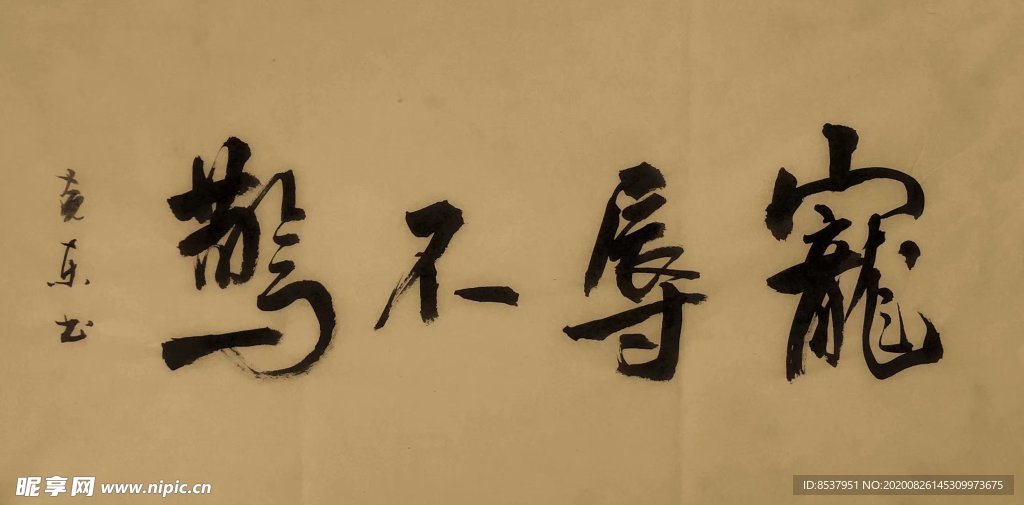 寵辱不驚
克东书
昵享网 www.nipic.cn
ID:8537951 NO:20200826145309973675